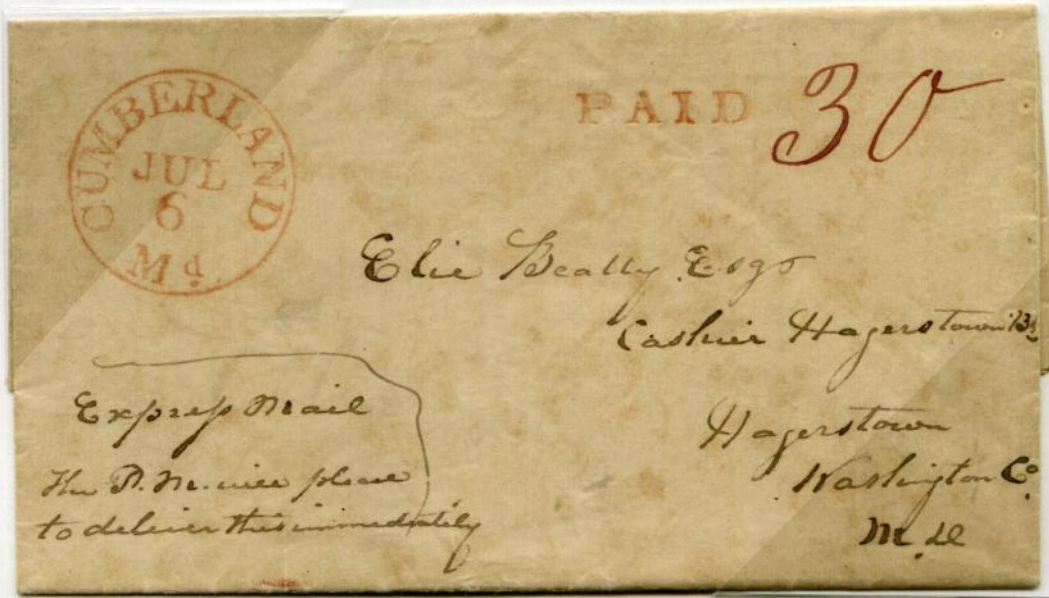 CUMBERLAND
JUL
6
Md.
PAID 30
Elie Beatty Esqr
Cashier Hagerstown Bk
Hagerstown
Washington Co.
M.d
Express Mail
The P. M. will please
to deliver this immediately